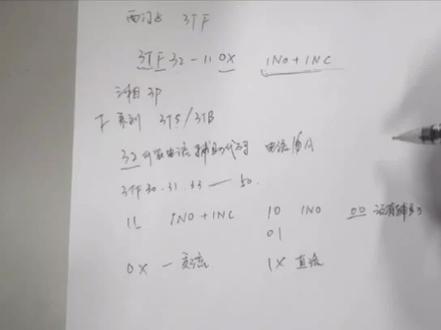 西门子 3TF
3TF 32-11 0X 1NO+1NC
三相 3P
下系列 3TS/3TB
32 代表电流 辅助代码 电流16A
3TF 30.31.33 — 50.
11 1NO+1NC 10 1NO 00 没有辅
01
0X — 交流 1X 直流